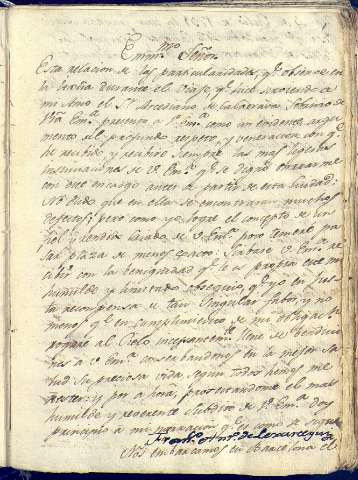 Emm.mo Señor.
Esta relacion de las particularidades, q.e observé en
la Sueña durante el Viaje, q.e hice sirviendo a
mi Amo el S.r Arcediano de Calatrava Sobrino de
V.ra Em.a presento a V. Em.a como un evidente argu-
mento del profundo respeto, y veneracion con q.e
he recibido y recibiré siempre las mas ligeras
insinuaciones de V. Em.a q.e se dignó honrarme
con este encargo antes de partir de esta Ciudad:
No dudo que en ella se encontraran muchos
defectos; pero como yo logre el concepto de un
fiel y rendido Criado de V. Em.a poco temeré pa-
sar plaza de menos docto: Sirvase V. Em.a re-
cibir con la benignidad q.e le es propia este mi
humilde y limitado obsequio, q.e yo en Jus-
ta recompensa de tan singular favor, y no
menos q.e en cumplimiento de mi obligac.n
rogaré al Cielo incesantem.te llene de bendicio-
nes a V. Em.a conservandonos en la mejor sa-
lud su preciosa vida segun todos hemos me-
nester: y por a hora, protestandome el mas
humilde y reverente Subdito de V. Em.a doy
principio a mi narracion q.e es como se sigue
Fran.co Ant.o de Lorenzana
Nos embarcamos en Barcelona el